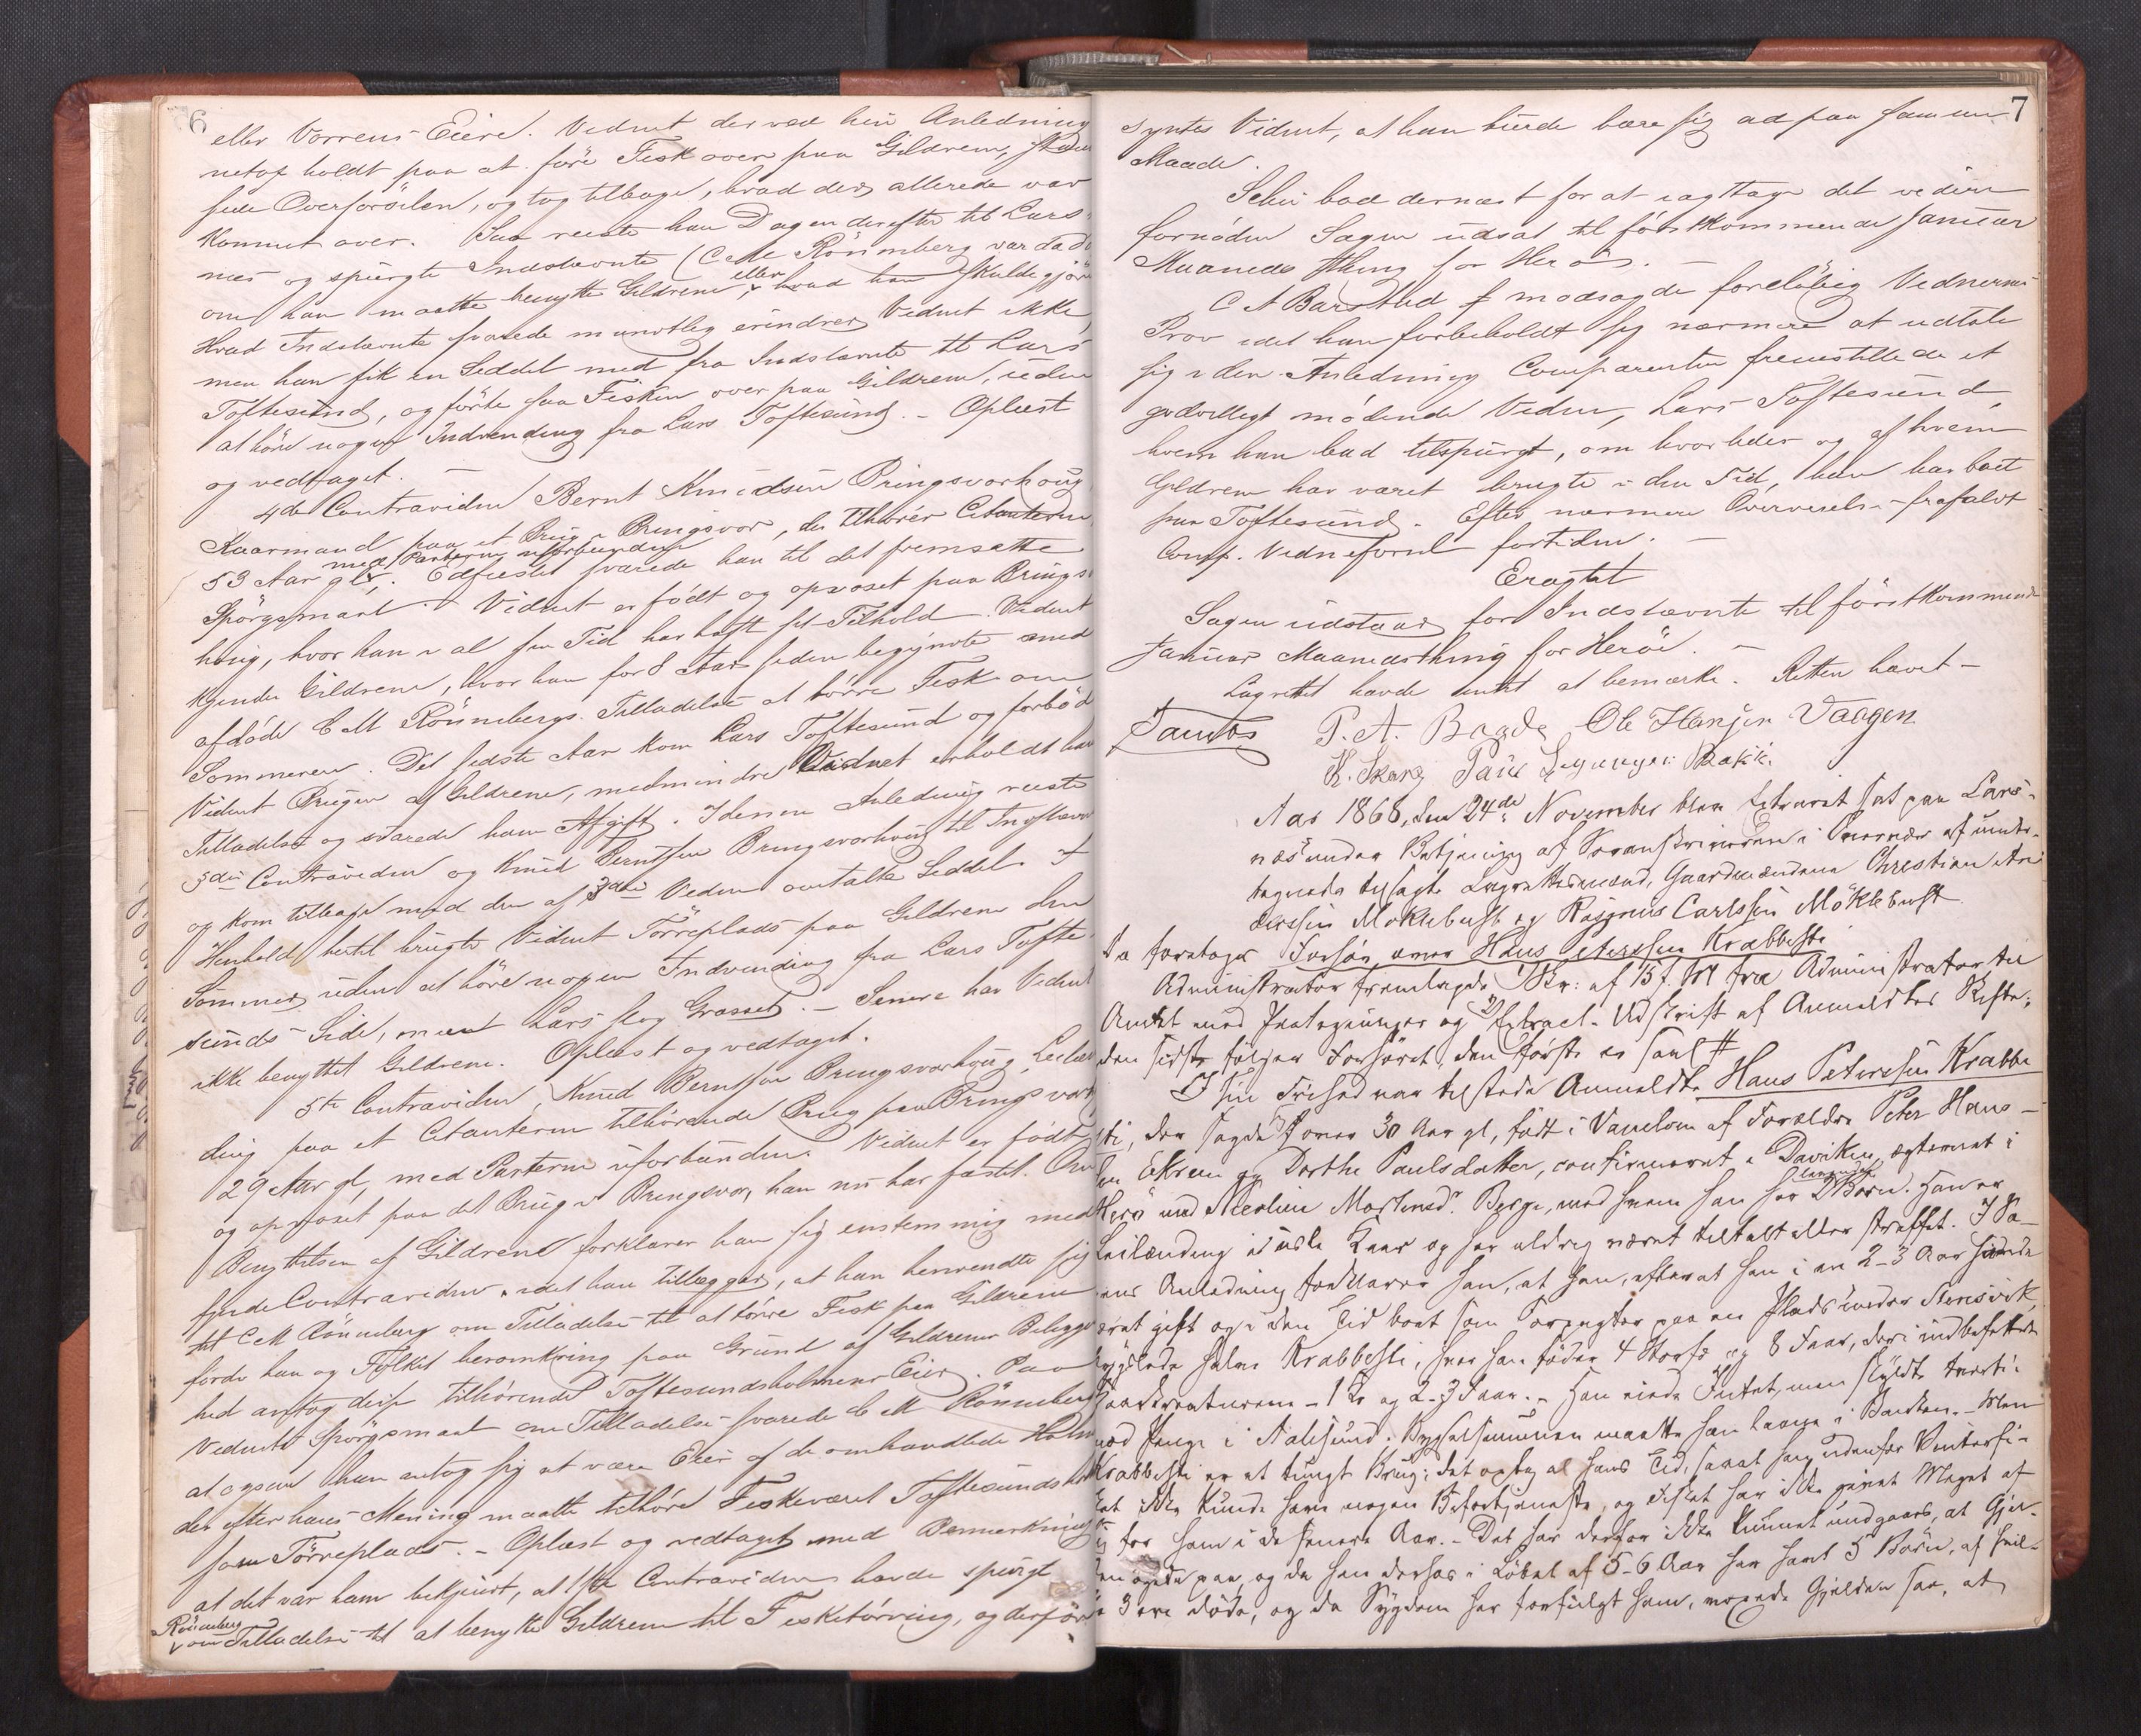 6
eller Vorrens Eiere. Vidnet der ved hin Anledning
netop holdt paa at före Fisk over paa Gildrem,
sede Overförselen, og tog tilbage, hvad der allerede var
kommet over. Saa reiste han Dagen derefter til Lars-
næs og spurgte Indstevnte (C M Rönneberg var da
om han maatte benytte Gildrem, eller hvad han skulde gjöre
Hvad Indstævnte svarede mundtlig erindrer Vidnet ikke,
men han fik en Seddel med fra Indstævnte til Lars
Toftesund, og förte saa Fisken over paa Gildrem, uden
at höre nogen Indvending fra Lars Toftesund. - Oplæst
og vedtaget. -
4de Contravidne Bernt Knudsen Pringsvorhoug
Kaarmand paa et Brug i Bringsvor, der tilhörer Citanterne
53 Aar gl, med Parterne uforbunden. Edfæstet svarede han til det fremsatte
Spörgsmaal. Vidnet er födt og opvoxet paa Brings
houg, hvor han i al sin Tid har havt sit Tilhold. Vidnet
kjender Gildrene, hvor han for 8 Aar siden begyndte med
afdöde C M Rönnebergs Tilladelse at törre Fisk om
Sommeren. Det sidste Aar kom Lars Toftesund og forböd
Vidnet Brugen af Gildrene, medmindre Vidnet erholdt hans
Tilladelse og svarede ham Afgift. I denne Anledning reiste
5de Contravidne og Knud Berntsen Bringsvorhoug til
og kom tilbage med den af 3die Vidne omtalte Seddel. I
Henhold hertil brugte Vidnet Törreplads paa Gildrem den
Sommer uden at höre nogen Indvending fra Lars Tofte-
sunds Side, ment Lars slog Græsset. - Senere har Vidnet
ikke benyttet Gildrene. Oplæst og vedtaget.
5te Contravidne, Knud Berntsen Bringsvorhoug, Leilæn
ding paa et Citanterne tilhörende Brug paa Bringsvor,
29 Aar gl, med Parterne uforbunden. Vidnet er födt
og opvoxet paa det Brug i Bringsvor, han nu har fæstet. Om
Benyttelsen af Gildrene forklarer han sig enstemmig med
fjerde Contravidne, idet han tillægger, at han henvendte sig
til C M Rönneberg om Tilladelse til at törre Fisk paa Gildrene
fordi han og Folket heromkring paa Grund af Gildrenes Beligge
hed antog disse tilhörende Toftesundsholmens Eier. Paa
Vidnets Spörgsmaal om Tilladelse svarede C M Rönneberg
at ogsaa han antog sig at være Eier af de omhandlede Holme
der efter hans Mening maatte tilhöre Fiskeværet Toftesundsh
som Törreplads. - Oplæst og vedtaget med Bemærkning
at det var ham bekjendt, at 1ste Contravidne havde spurgt
Rönneberg om Tilladelse til at benytte Gildrem til Fisketörring, og derfor
7
syntes Vidnet, at han burde bære sig ad paa samme
Maade.
Schei bad dernæst for at iagttage det videre
fornödne Sagen udsat til förstkommende Januar
Maaneds Thing for Heröe. -
C A Barstad modsagde forelöbig Vidnernes
Prov idet han forbeholdt sig nærmere at udtale
sig i den Anledning Comparenten fremstillede et
godvilligt mödende Vidne, Lars Toftesund
hvem han bad tilspurgt, om hvorledes og af hvem
Gildrem har været brugte i den Tid, han har boet
paa Toftesund. Efter nærmere Overveielse frafaldt
Comp. Vidneförsel fortiden. -
Eragtet
Sagen udstaar for Indstævnte til förstkommende
Januar Maanedsthing for Heröe. -
Lagrettet havde intet at bemærke. Retten hævet -
P. A. Bagde Ole Hansen Vaagen
K. Skarg Paul Bakke.
Aar 1868, den 24de November blev Extraret sat paa Lars-
næs under Betjening af Sorenskriveren i Overvær af under-
tegnede tilsagte Lagrettesmænd, Gaardmændene Christian An
derssen Möklebust og Rasmus Carlssen Möklebust
da foretoges Forhör over Hans Peterssen Krabbesti
Administrator fremlagde Skr: af 13 f. M fra Administrator til
Amtet med Paategninger og 2) Extract-Udskrift af Anmeldtes Skifte;
den sidste fölger Forhöret, den förste er saal #
I sin Frihed var tilstede Anmeldte Hans Peterssen Krabbe
sti, der sagde sig over 30 Aar gl, födt i Vanelven af Forældre Peter Hans-
sen Ekrem og Dorthe Paulsdatter, confirmeret i Daviken, ægteviet i
Herö med Nicoline Martinsd. Berge, med hvem han har 2 levende Börn. Han er
Leilænding i usle Kaar og har aldrig været tiltalt eller straffet. I Sa-
gens Anledning forklarer han, at han, efterat han i en 2-3 Aar havde
været gift og i den Tid boet som Forpagter paa en Plads under Stensvik
bygslede halve Krabbesti, hvor han föder 4 Storfæ og 8 Faar, deri indbefattet
Fodernaturerne - 1 Ko og 2-3 Faar. - Han eiede Intet, men skyldte tverti-
mod Penge i Aalesund. Bygselsummen maatte han laane i Banken. - Men
Krabbesti er et tungt Brug: det optog al hans Tid, saaat han udenfor Vinterfi-
sket ikke kunde have nogen Bifortjeneste, og Fisket har ikke givet Meget af
sig for ham i de senere Aar. - Det har derfor ikke kunnet undgaaes, at Gjæl-
den ögede paa, og da han derhos i Löbet af 5-6 Aar har havt 5 Börn, af hvil-
ke 3 ere döde, og da Sygdom har forfulgt ham, voxede Gjælden saa, at